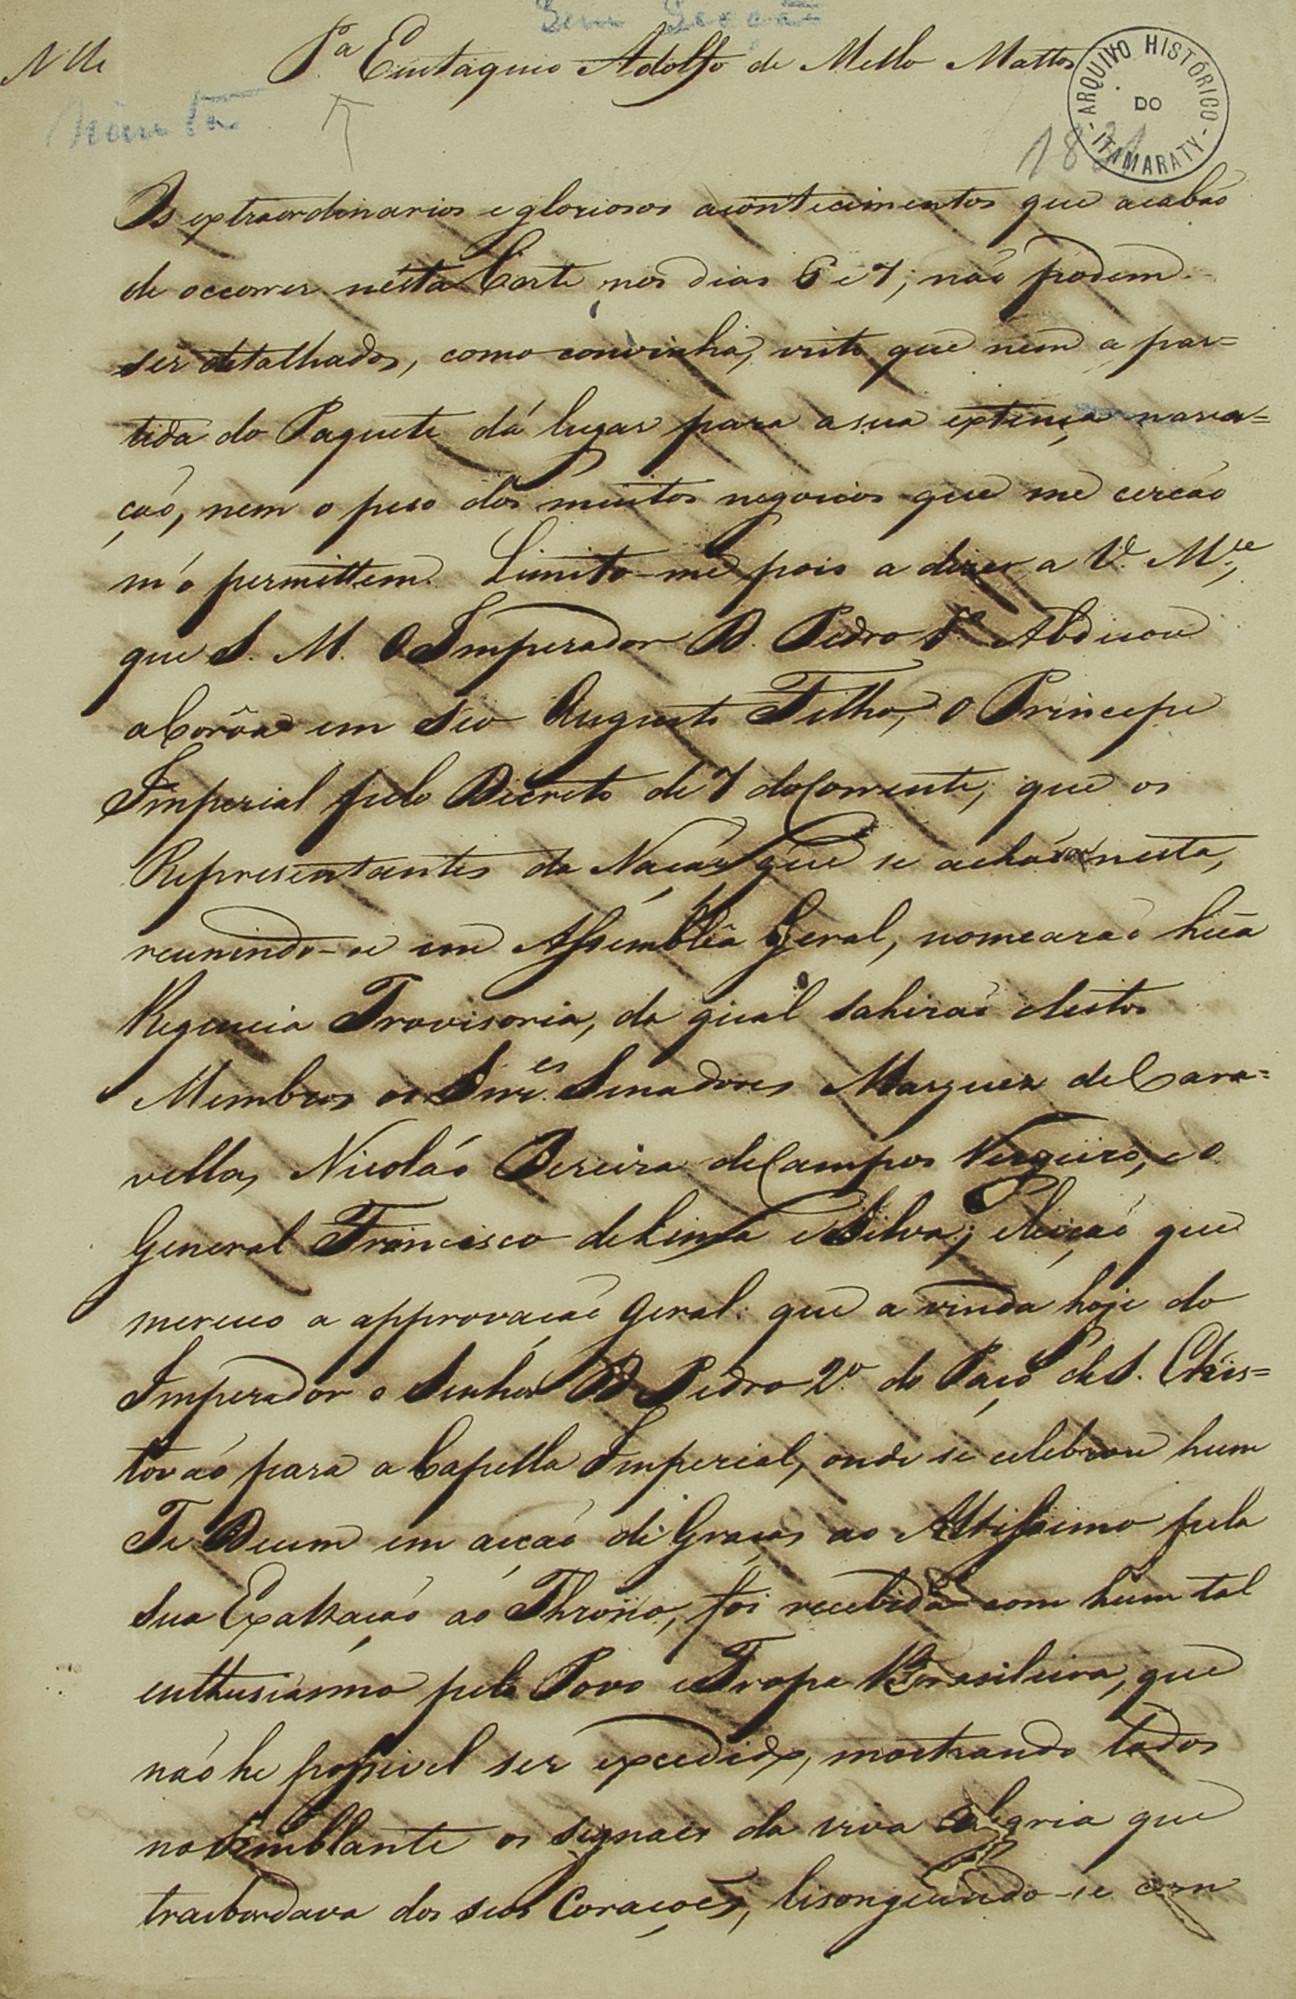 Sem Secção
P.ª Eustaquio Adolfo de Mello Mattos
ARQUIVO HISTÓRICO
DO
ITAMARATY
Minuta
1831
Os extraordinarios e gloriosos acontecimentos que acabão
de occorrer nésta Corte nos dias 6 e 7, não podem
ser detalhados, como convinha, visto que nem a par=
tida do Paquete dá lugar para a sua extença narra=
ção, nem o peso dos muitos negocios que me cercão
m'o permittem. Limito-me pois a dizer a V. M.ce,
que S. M. O Imperador D. Pedro 1º Abdicou
a Corôa em Seo Augusto Filho, O Principe
Imperial pelo Decreto de 7 do Corrente; que os
Representantes da Nação que se achão nesta,
reunindo-se em Assemblêa Geral, nomearão hũa
Regencia Provisoria, da qual sahirão eleitos
Membros os Snr.es Senadores Marquez de Cara=
vellas, Nicoláo Pereira de Campos Vergueiro, e o
General Francisco de Lima e Silva; eleição que
mereceo a approvação geral: que a vinda hoje do
Imperador o Senhor D. Pedro 2º do Paço de S. Chris=
tovão para a Capella Imperial, onde se celebrou hum
Te Deum em acção de Graças ao Altissimo pela
sua Exaltação ao Throno, foi recebida com hum tal
enthusiasmo pelo Povo e Tropa Brasileira, que
não he possivel ser excedido, mostrando todos
no semblante os signaes da viva alegria que
trasbordava dos seos Corações, lisongeando-se com